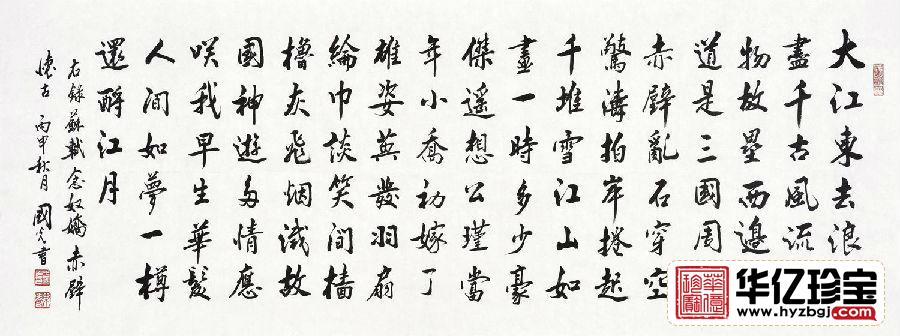 大江東去浪
盡千古風流
物故壘西邊
道是三國周
赤壁亂石穿空
驚濤拍岸捲起
千堆雪江山如
畫一時多少豪
傑遙想公瑾當
年小喬初嫁了
雄姿英發羽扇
綸巾談笑間檣
櫓灰飛烟滅故
國神遊多情應
咲我早生華髮
人間如夢一樽
還酹江月
右錄蘇軾念奴嬌赤壁
懷古 丙申秋月 國光書
华亿珍宝
www.hyzbgj.com